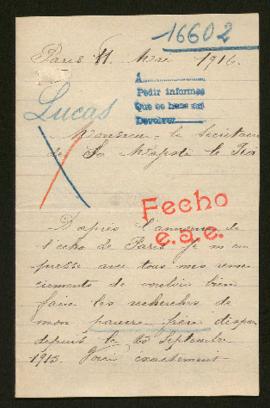 16602
Paris 11 1916.
Á
Pedir informes
Que se hace eso
Devolver
Lucas
Monsieur le Secrétaire
de Sa Majesté le Roi
Fecho
e.a.e.
D'après l'annonce de
l'echo de Paris je m'em
presse avec tous mes remer
ciements de vouloir bien
faire les recherches de
mon pauvre frère dispa
depuis le 25 Septembre
1915. Voici exactement